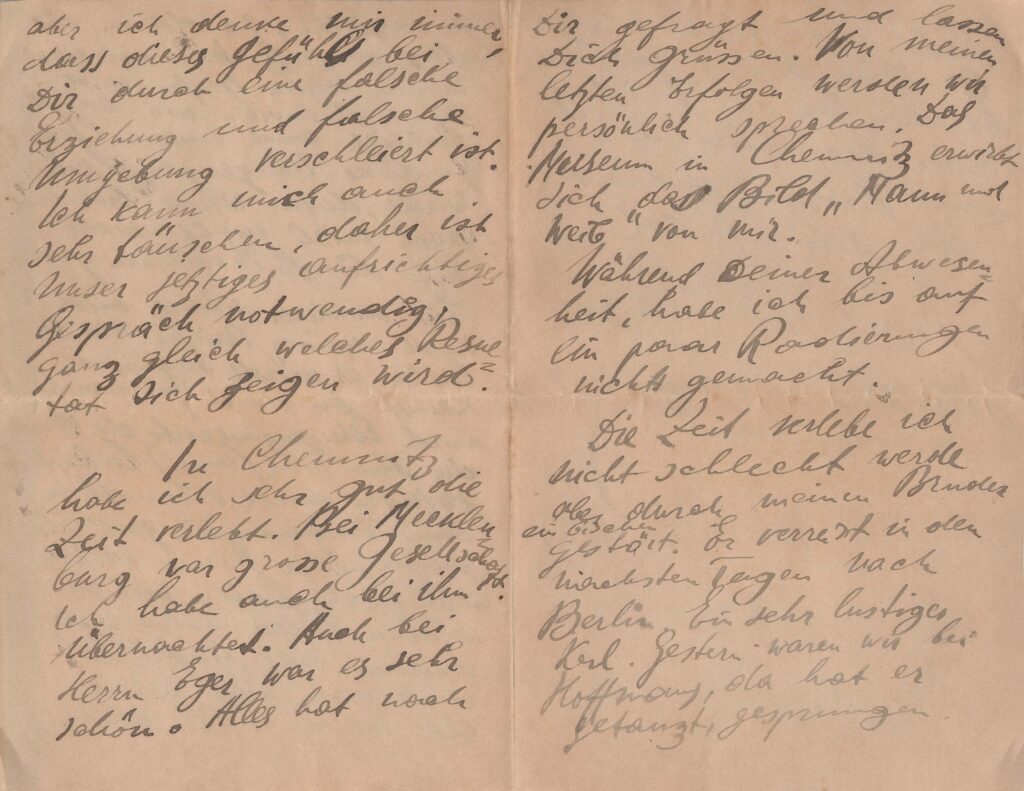 aber ich denke mir immer,
dass dieses Gefühl bei
Dir durch eine falsche
Erziehung und falsche
Umgebung verschleiert ist.
Ich kann mich auch
sehr täuschen, daher ist
unser jetztiges aufrichtiges
Gespräch notwendig,
ganz gleich welches Resul=
tat sich zeigen wird.
In Chemnitz
habe ich sehr gut die
Zeit verlebt. Bei Mecklen=
burg war grosse Gesellschaft.
Ich habe auch bei ihm
übernachtet. Auch bei
Herrn Eger war es sehr
schön. Alles hat nach
Dir gefragt und lassen
Dich Grüssen. Von meinen
letzten Erfolgen werden wir
persönlich sprechen. Das
Museum in Chemnitz erwirbt
sich das Bild „Mann und
Weib" von mir.
Während Deiner Abwesen=
heit, habe ich bis auf
ein paar Radierungen
nichts gemacht.
Die Zeit verlebe ich
nicht schlecht werde
aber durch meinen Bruder
ein bischen
gestört. Er verreist in den
nächsten Tagen nach
Berlin. Ein sehr lustiges
Kerl. Gestern waren wir bei
Hoffmans, da hat er
getanzt, gesprungen